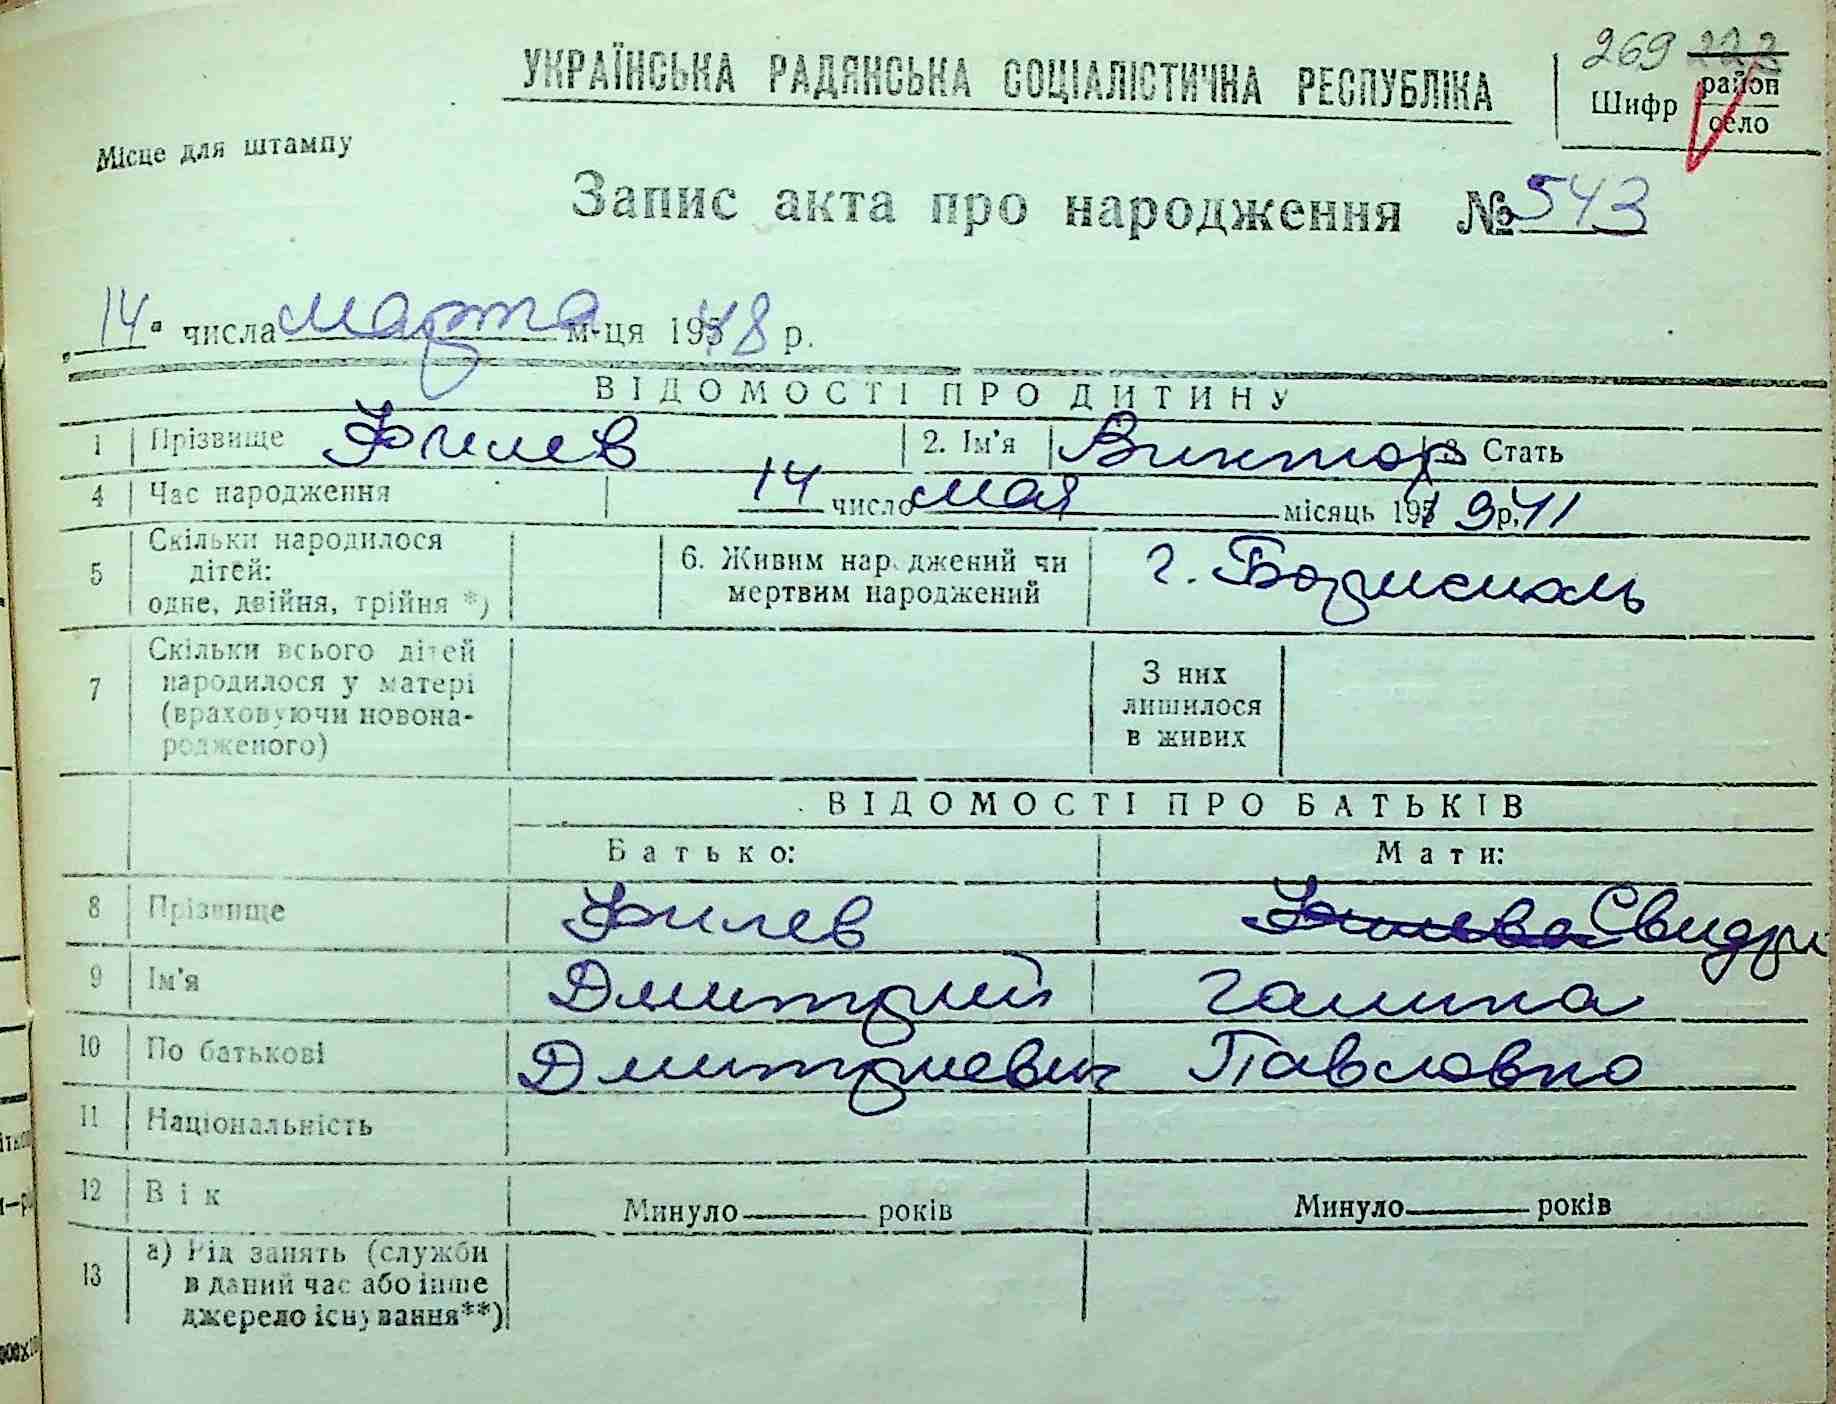 269 222
УКРАЇНСЬКА РАДЯНСЬКА СОЦІАЛІСТИЧНА РЕСПУБЛІКА
Шифр район село
Місце для штампу
Запис акта про народження № 543
"14" числа марта м-ця 1948 р.
ВІДОМОСТІ ПРО ДИТИНУ
1 Прізвище Филев 2. Ім'я Виктор 3. Стать
4 Час народження 14 число мая місяць 1941 р.
5 Скільки народилося дітей: одне, двійня, трійня *) 6. Живим народжений чи мертвим народжений г. Борисполь
7 Скільки всього дітей народилося у матері (враховуючи новонародженого) З них лишилося в живих
ВІДОМОСТІ ПРО БАТЬКІВ
Батько: Мати:
8 Прізвище Филев Филева Свидри
9 Ім'я Дмитрий Галина
10 По батькові Дмитриевич Павловна
11 Національність
12 Вік Минуло років Минуло років
13 а) Рід занять (служби в даний час або інше джерело існування**)